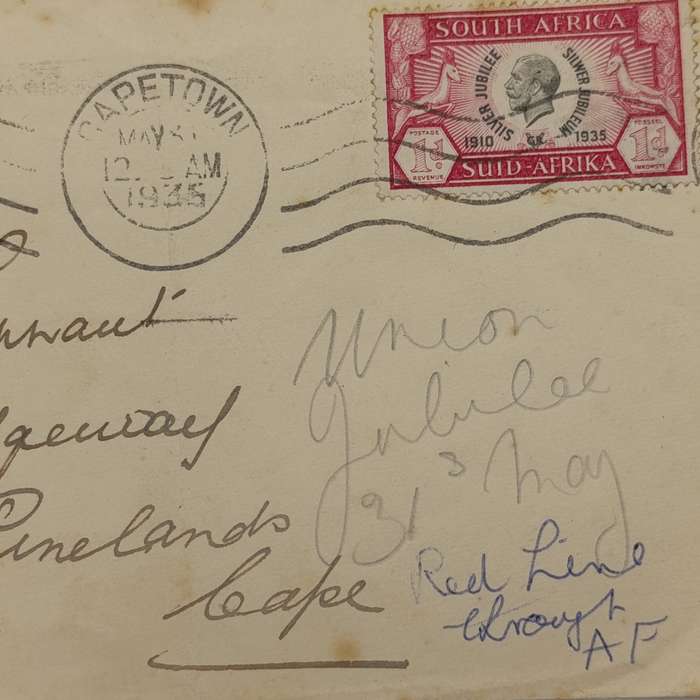 CAPETOWN
MAY 31
AM
1935
SOUTH AFRICA
SILVER JUBILEE
SILWER JUBILEUM
1910
1935
POSTAGE
REVENUE
1d
POSSEËL
INKOMSTE
1d
SUID-AFRIKA
Pinelands
Cape
Union
Jubilee
31s May
Red Line
through
AF